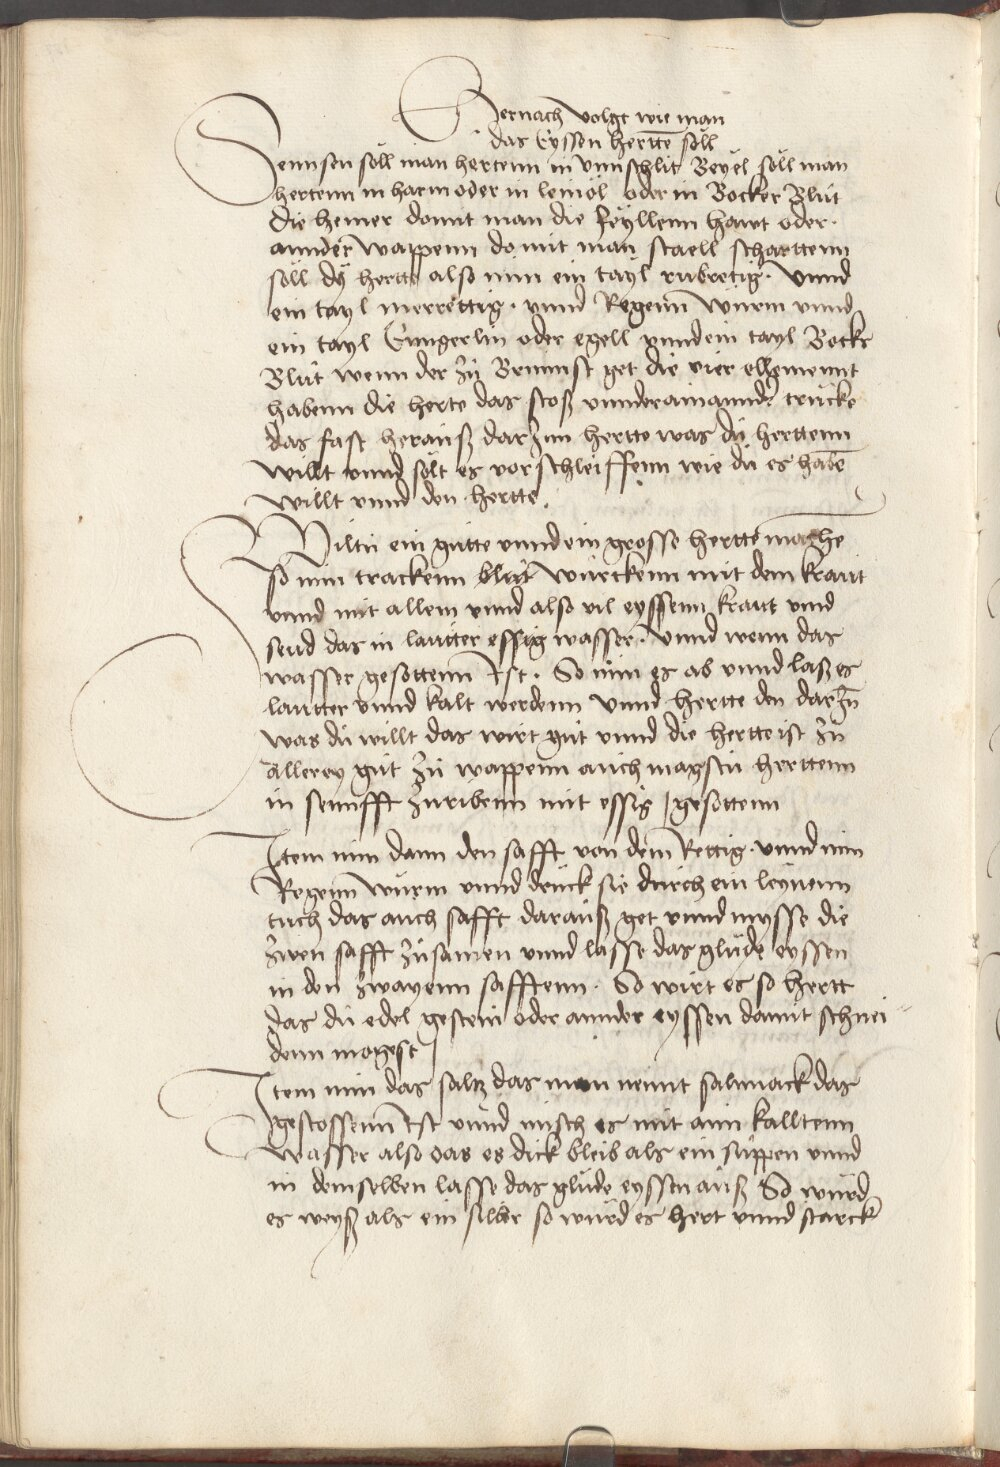 Hernach volgt wie man
das Eyssen herttē soll
Sennsen soll man hertenn in vnnschlit Beyel soll man
herttenn in harm oder in leinöl oder in Bocker Blut
die hemer domit man die feyllenn hawt oder
annder wappenn do mit man staell scharttenn
soll dy hertte also nim ein tayl rubretig. Vnnd
ein tayl merrettig. vnnd Regenn wurm vnnd
ein tayl Enngerlin oder egell vnnd ein tayl Bocks
Blut wenn der zu Brunnst get die vier ellemennt
habenn die herte das stoß vnnderainannder trucke
das fast herauß dar Inn hertte was du herttenn
willt vnnd sollt es vor schleiffenn wie du es habē
willt vnnd den hertte.
Wiltu ein gutte vnnd ein grosse hertte mache
so nim trackenn blut wurtzenn mit dem kraut
vnnd mit allem vnnd also vil eyssenn kraut vnd
send das in lautter essig wasser. Vnnd wenn das
wasser gesottenn Ist. So nim es ab vnnd laß es
lautter vnnd kalt werdenn Vnnd hertte den dar In
was du willt das wirt gut vnnd die hertte ist zu
allerey gut zu wappenn auch magstu herttenn
in sennfft zuribenn mit essig gesottenn
Item nim dann den safft von dem Rettig. vnnd nim
Regenn wurm vnnd druck sie durch ein leynenn
tuch das auch safft darauß get vnnd mysse die
zwen safft zusamen vnnd lasse das glude eyssen
in den zwayenn safftenn. So wirt es so hertt
das du edel gestein oder annder eyssen damit schnei
denn mogest
Item nim das saltz das man nennt salmiack das
gestossenn Ist vnnd misch es mit aim kalltenn
wasser also das es dick bleib als ein suppen vnnd
in demselben lasse das glude eyssen auß So wurd
es weyß als ein silber so wurd es hert vnnd starck